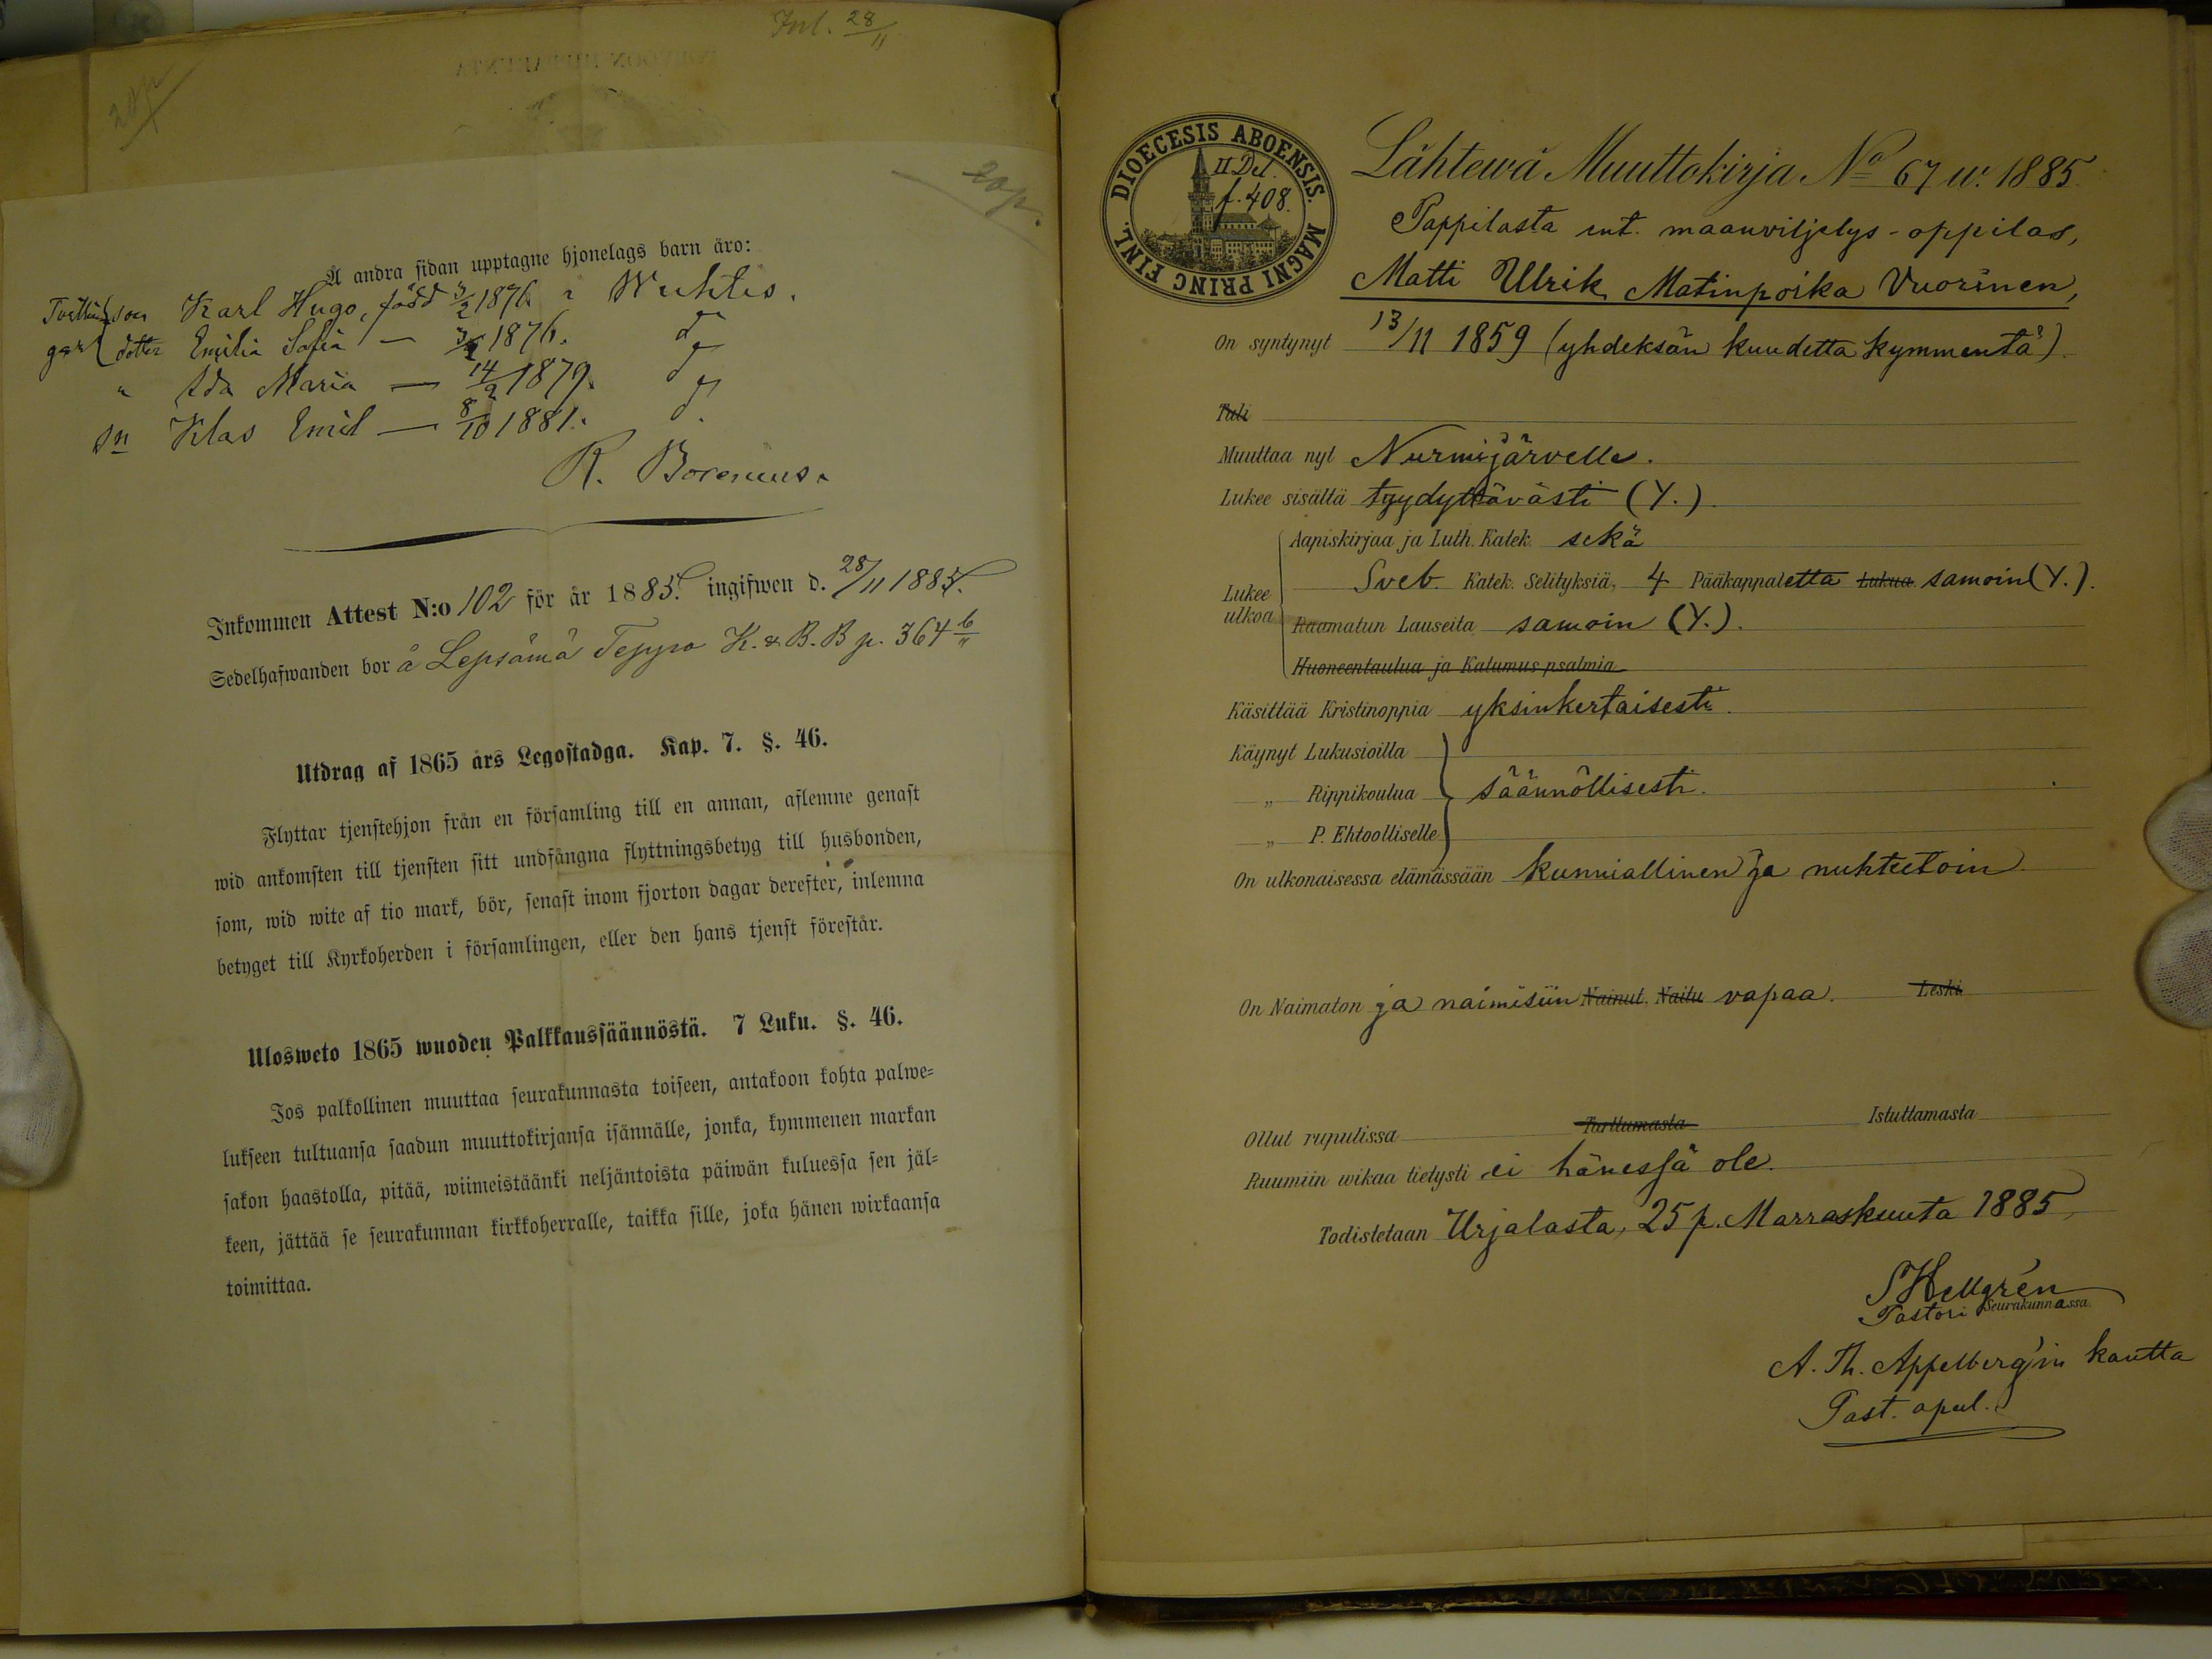 Inl. 28/11
20p
20p.
Å andra sidan upptagne hjonelags barn äro:
son Karl Hugo, född 3/2 1876 i Wichtis.
dotter Emilia Sofia — 3/2 1876. do
" Ida Maria — 14/2 1879. do
sn Klas Emil — 8/10 1881. do
R. Borenius.
Inkommen Attest N:o 102 för år 1885. ingifwen d. 28/11 1885.
Sedelhafwanden bor å Lepsämä Teppo K. & B. B p. 364 b
Utdrag af 1865 års Legostadga. Kap. 7. §. 46.
Flyttar tjenstehjon från en församling till en annan, aflemne genast
wid ankomsten till tjensten sitt undfångna flyttningsbetyg till husbonden,
som, wid wite af tio mark, bör, senast inom fjorton dagar derefter, inlemna
betyget till Kyrkoherden i församlingen, eller den hans tjenst förestår.
Ulosweto 1865 wuoden Palkkaussäännöstä. 7 Luku. §. 46.
Jos palkollinen muuttaa seurakunnasta toiseen, antakoon kohta palwe=
lukseen tultuansa saadun muuttokirjansa isännälle, jonka, kymmenen markan
sakon haastolla, pitää, wiimeistäänki neljäntoista päiwän kuluessa sen jäl=
keen, jättää se seurakunnan kirkkoherralle, taikka sille, joka hänen wirkaansa
toimittaa.
DIOECESIS ABOENSIS. MAGNI PRINC FINL.
II Del.
f. 408.
Lähtewä Muuttokirja No 67 w. 1885.
Pappilasta ent. maanviljelys-oppilas,
Matti Ulrik Matinpoika Vuorinen,
On syntynyt 13/11 1859 (yhdeksän kuudetta kymmentä).
Tuli
Muuttaa nyt Nurmijärvelle.
Lukee sisältä tyydyttävästi (Y.).
Aapiskirjaa ja Luth. Katek. sekä
Lukee ulkoa Sveb. Katek. Selityksiä, 4 Pääkappaletta Lukua samoin (Y.).
Raamatun Lauseita samoin (Y.).
Huoneentaulua ja Katumus psalmia
Käsittää Kristinoppia yksinkertaisesti.
Käynyt Lukusioilla
" Rippikoulua säännöllisesti.
" P. Ehtoolliselle
On ulkonaisessa elämässään kunniallinen ja nuhteetoin.
On Naimaton ja naimisiin Nainut. Naitu vapaa. Leski
Ollut rupulissa Tarttumasta Istuttamasta
Ruumiin wikaa tietysti ei hänessä ole.
Todistetaan Urjalasta, 25 p. Marraskuuta 1885,
S Hellgrén
Pastori Seurakunnassa.
A. Th. Appelberg'in kautta
Past. apul.